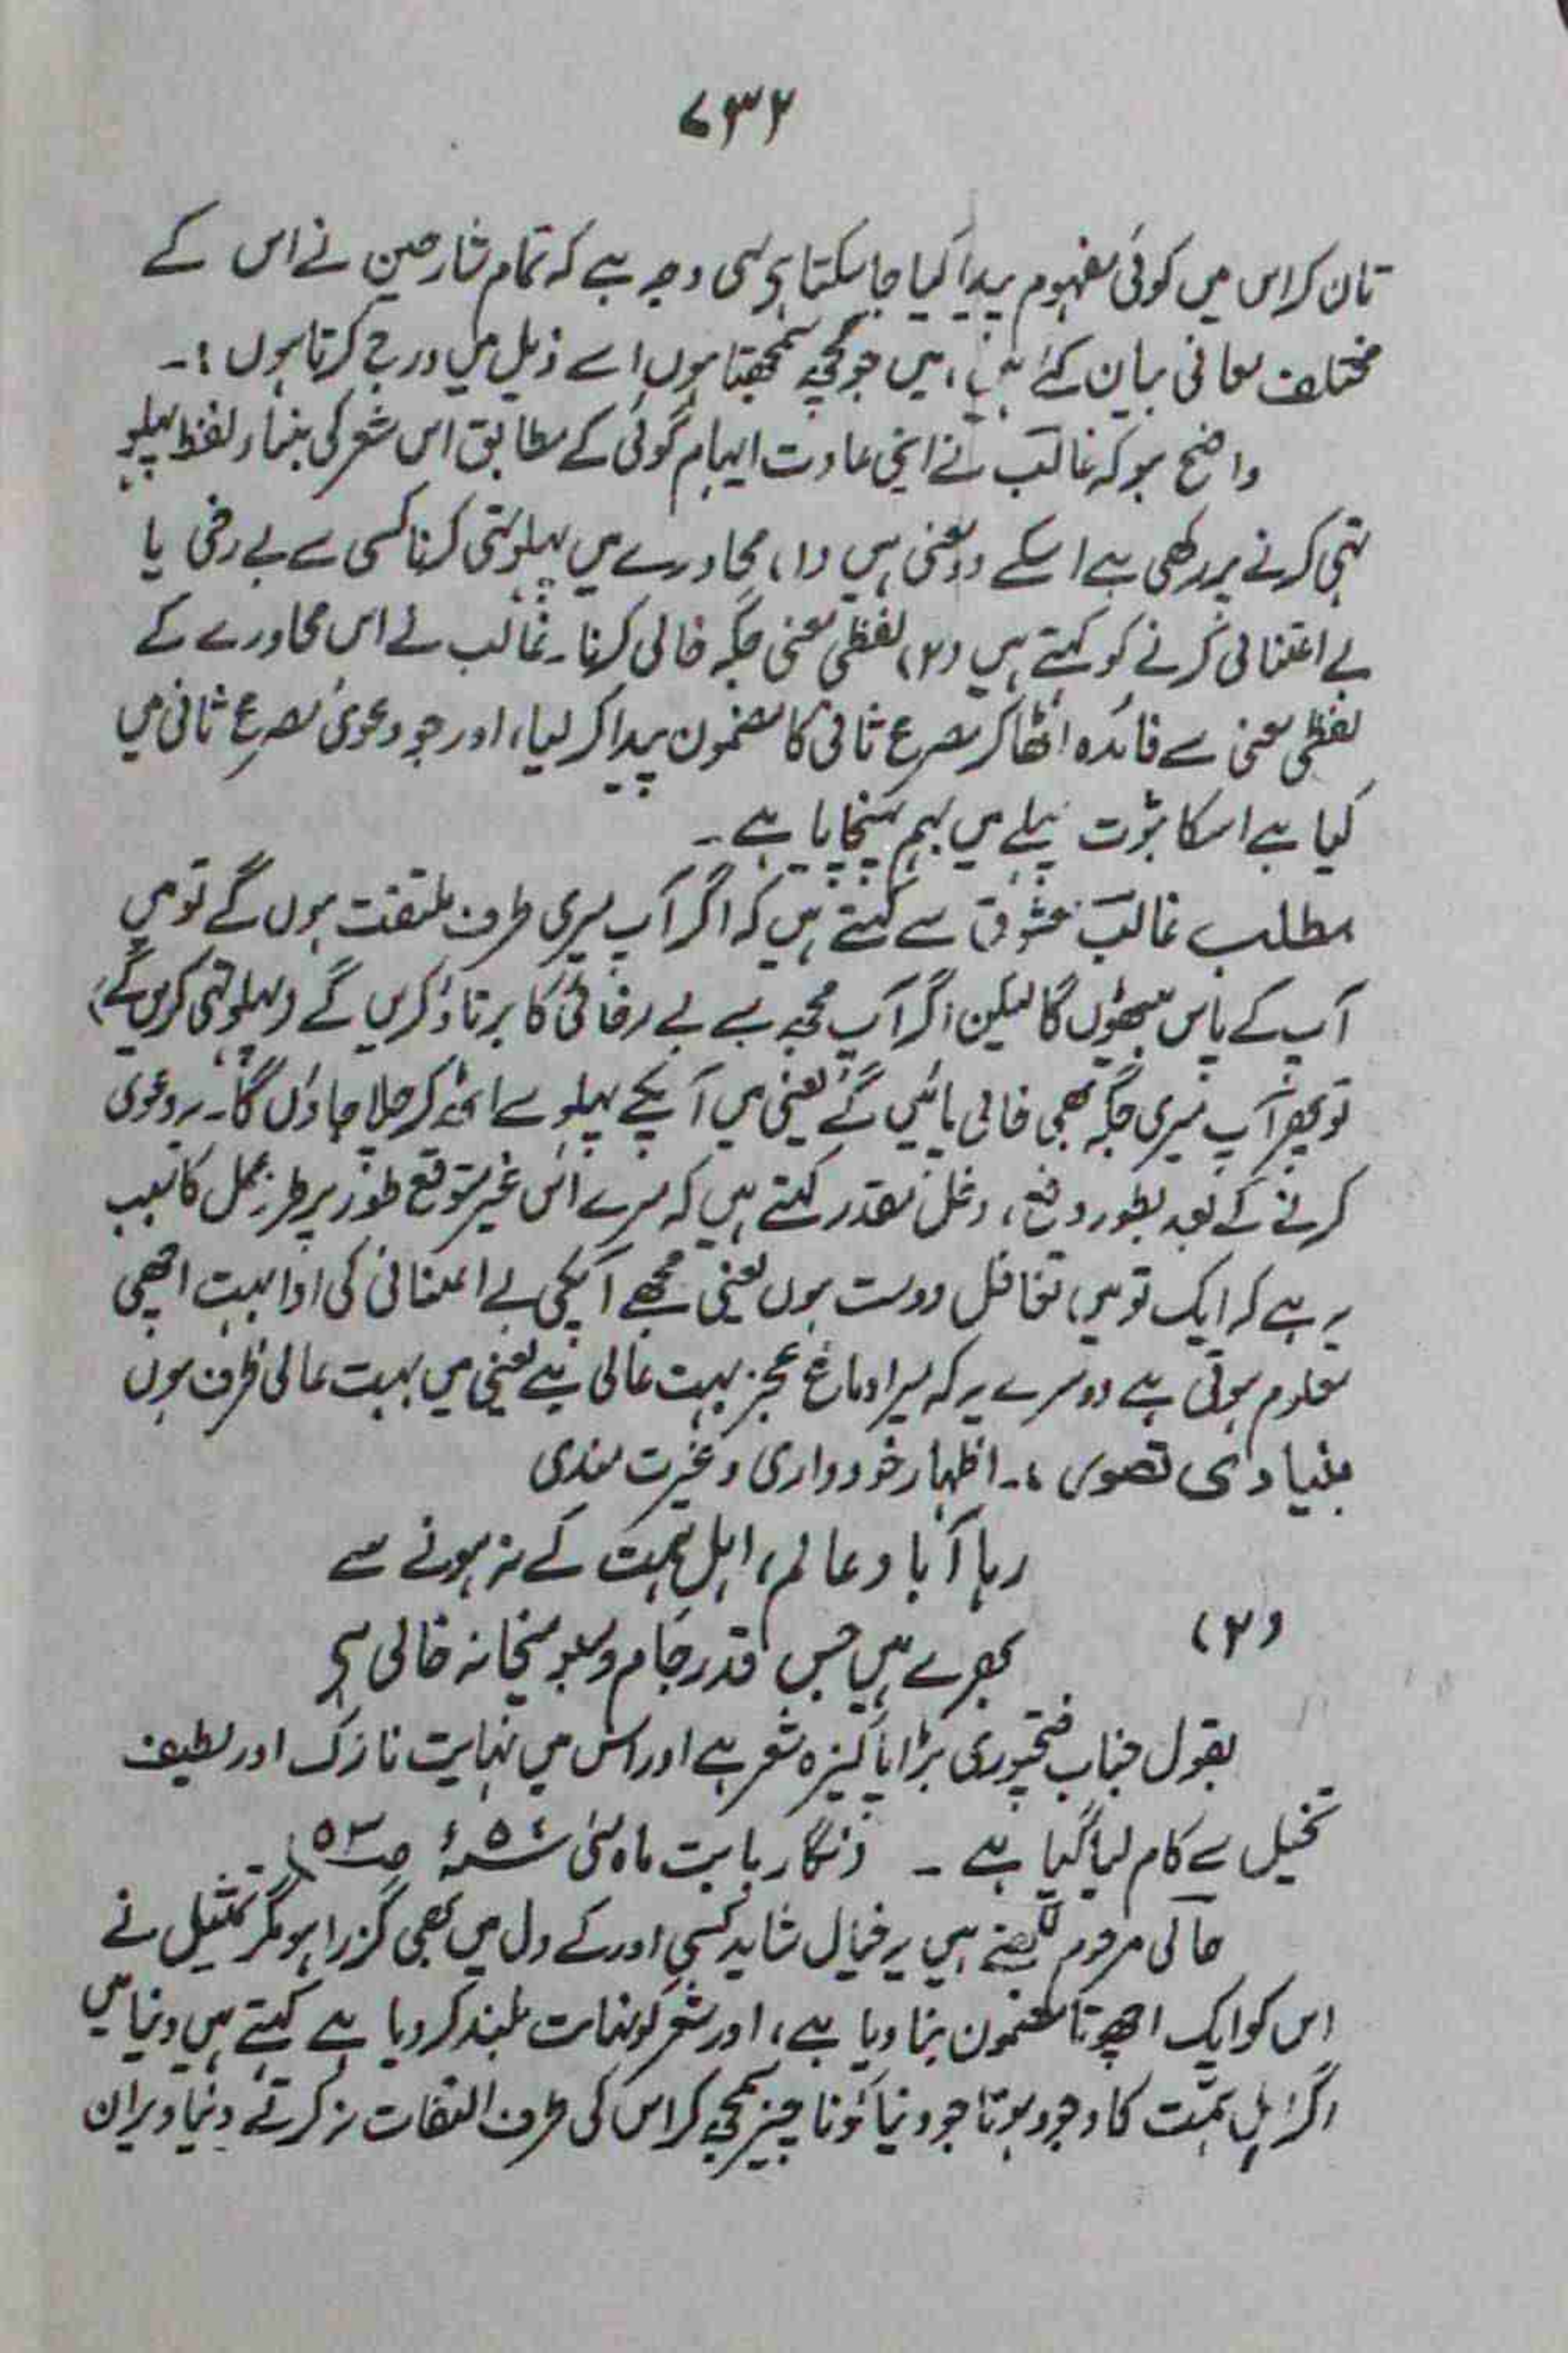 ۷۳۲
تان کر اس میں کوئی مفہوم پیدا کیا جاسکتا ہے یہی وجہ ہے کہ تمام شارحین نے اس کے
مختلف معانی بیان کئے ہیں، میں جو کچھ سمجھتا ہوں اسے ذیل میں درج کرتا ہوں :۔
واضح ہو کہ غالب نے اپنی عادت ایہام گوئی کے مطابق اس شعر کی بنیاد لفظ پہلو
تہی کرنے پر رکھی ہے اسکے دو معنی ہیں (۱) محاورے میں پہلو تہی کرنا کسی سے بے رخی یا
بے اعتنائی کرنے کو کہتے ہیں (۲) لفظی معنی جگہ خالی کرنا۔ غالب نے اس محاورے کے
لفظی معنی سے فائدہ اٹھا کر مصرع ثانی کا مضمون پیدا کر لیا، اور جو دعویٰ مصرع ثانی میں
کیا ہے اسکا ثبوت پہلے میں بہم پہنچایا ہے۔
مطلب غالب معشوق سے کہتے ہیں کہ اگر آپ میری طرف ملتفت ہوں گے تو میں
آپ کے پاس بیٹھوں گا لیکن اگر آپ مجھ سے بے رخائی کا برتاؤ کریں گے (پہلو تہی کریں گے)
تو پھر آپ میری جگہ بھی خالی پائیں گے یعنی میں آپکے پہلو سے اٹھ کر چلا جاؤں گا۔ یہ دعویٰ
کرنے کے بعد بطور دفع، دخل مقدر کہتے ہیں کہ میرے اس غیر متوقع طور پر طرز عمل کا سبب
یہ ہے کہ ایک تو میں تغافل دوست ہوں یعنی مجھے آپکی بے اعتنائی کی ادا بہت اچھی
معلوم ہوتی ہے دوسرے یہ کہ میرا دماغ عجز بہت عالی ہے یعنی میں بہت عالی ظرف ہوں
بنیادی تصور :۔ اظہار خودداری و غیرت مندی
رہا آباد عالم، اہل ہمت کے نہ ہونے سے
(۲)
بھرے ہیں جس قدر جام و سبو میخانہ خالی ہے
بقول جناب فتحپوری بڑا پاکیزہ شعر ہے اور اس میں نہایت نازک اور لطیف
تخیل سے کام لیا گیا ہے ۔ (نگار بابت ماہ مئی ۵۴ء ص ۵۳)
حالی مرحوم لکھتے ہیں یہ خیال شاید کسی اور کے دل میں بھی گزرا ہو مگر تمثیل نے
اس کو ایک اچھوتا مضمون بنا دیا ہے، اور شعر کو نہایت بلند کر دیا ہے کہتے ہیں دنیا میں
اگر اہل ہمت کا وجود ہوتا جو دنیا کو ناچیز سمجھ کر اس کی طرف التفات نہ کرتے دنیا ویران